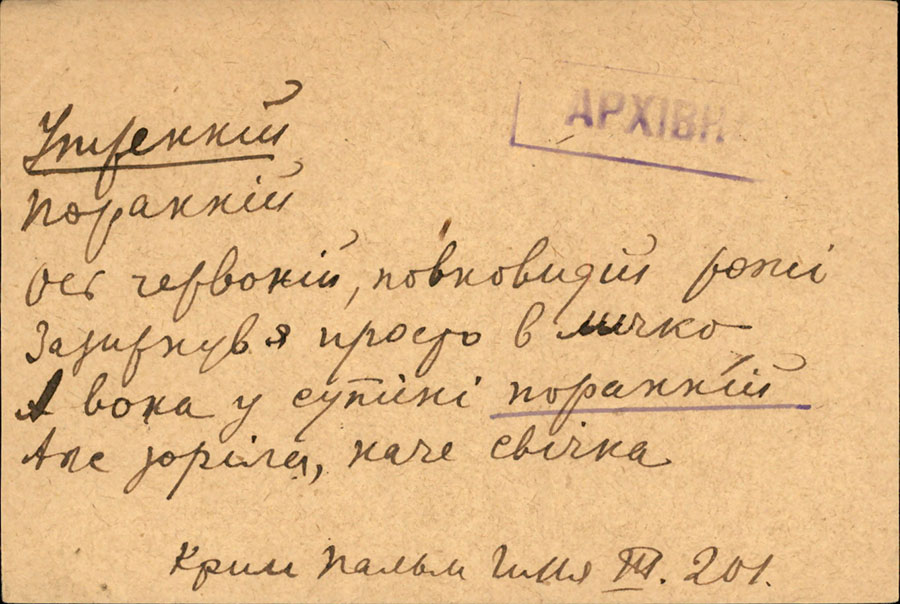 АРХІВН
Утренній
Поранній
Ось червоній, повновидій рожі
Зазирнув я просто в личко
А вона у сутіні поранній
Але зоріла, наче свічка
Крим Пальм Гилля III. 201.